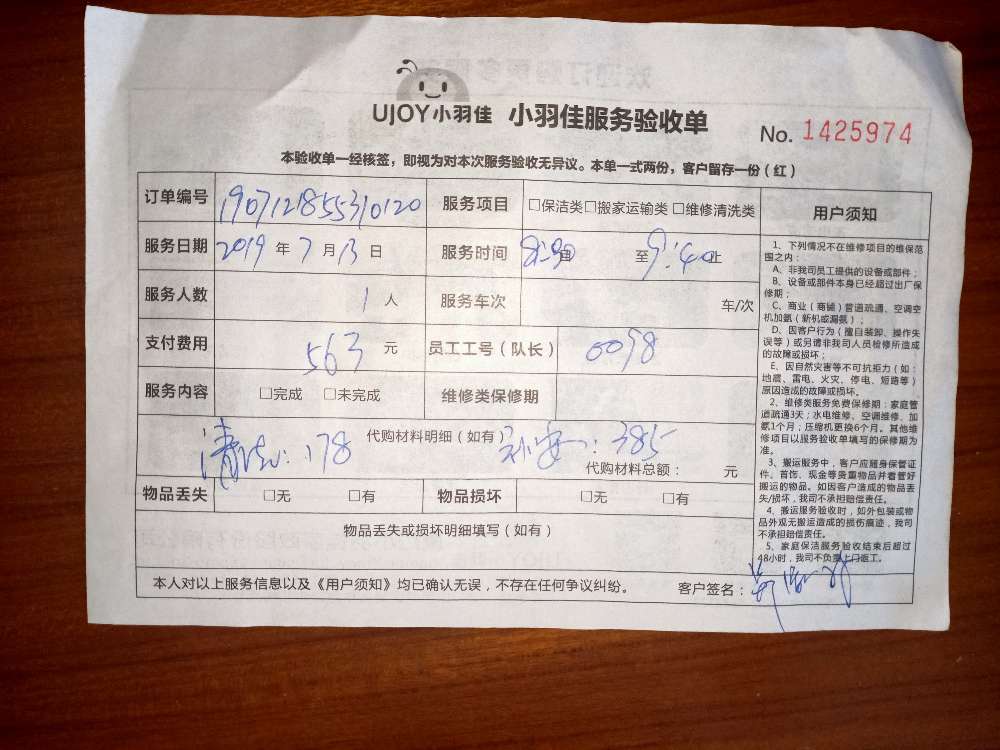 UJOY小羽佳 小羽佳服务验收单
No. 1425974
本验收单一经核签，即视为对本次服务验收无异议。本单一式两份，客户留存一份（红）
订单编号 1907121855310120 服务项目 □保洁类□搬家运输类 □维修清洗类
服务日期 2019 年 7 月 13 日 服务时间 至 9:40 止
服务人数 1 人 服务车次 车/次
支付费用 563 元 员工工号（队长） 0098
服务内容 □完成 □未完成 维修类保修期
代购材料明细（如有）
清洗：178 385
代购材料总额： 元
物品丢失 □无 □有 物品损坏 □无 □有
物品丢失或损坏明细填写（如有）
本人对以上服务信息以及《用户须知》均已确认无误，不存在任何争议纠纷。 客户签名：
用户须知
1、下列情况不在维修项目的维保范
围之内：
A、非我司员工提供的设备或部件；
B、设备或部件本身已经超过出厂保
修期；
C、商业（商铺）管道疏通、空调空
机加氨（新机或漏氨）；
D、因客户行为（擅自装卸、操作失
误等）或另请非我司人员检修所造成
的故障或损坏；
E、因自然灾害等不可抗拒力（如：
地震、雷电、火灾、停电、短路等）
原因造成的故障或损坏。
2、维修类服务免费保修期：家庭管
道疏通3天；水电维修、空调维修、加
氨1个月；压缩机更换6个月。其他维
修项目以服务验收单填写的保修期为
准。
3、搬运服务中，客户应随身保管证
件、首饰、现金等贵重物品并看管好
搬运的物品。如因客户造成的物品丢
失/损坏，我司不承担赔偿责任。
4、搬运服务验收时，如外包装或物
品外观无搬运造成的损伤痕迹，我司
不承担赔偿责任。
5、家庭保洁服务验收结束后超过
48小时，我司不负责上门返工。